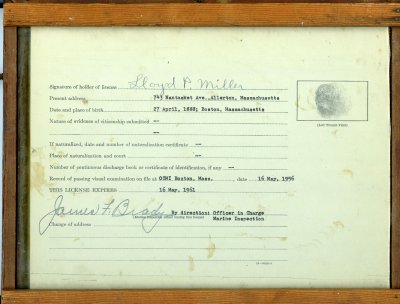 Signature of holder of license Lloyd P. Miller
Present address 743 Nantasket Ave., Allerton, Massachusetts
Date and place of birth 27 April, 1888; Boston, Massachusetts
Nature of evidence of citizenship submitted --
--
(Left Thumb Print)
If naturalized, date and number of naturalization certificate --
Place of naturalization and court --
Number of continuous discharge book or certificate of identification, if any --
Record of passing visual examination on file at OCMI Boston, Mass. , date 16 May, 1956
THIS LICENSE EXPIRES 16 May, 1961
James F. Brady By direction: Officer in Charge
Marine Inspection
Change of address